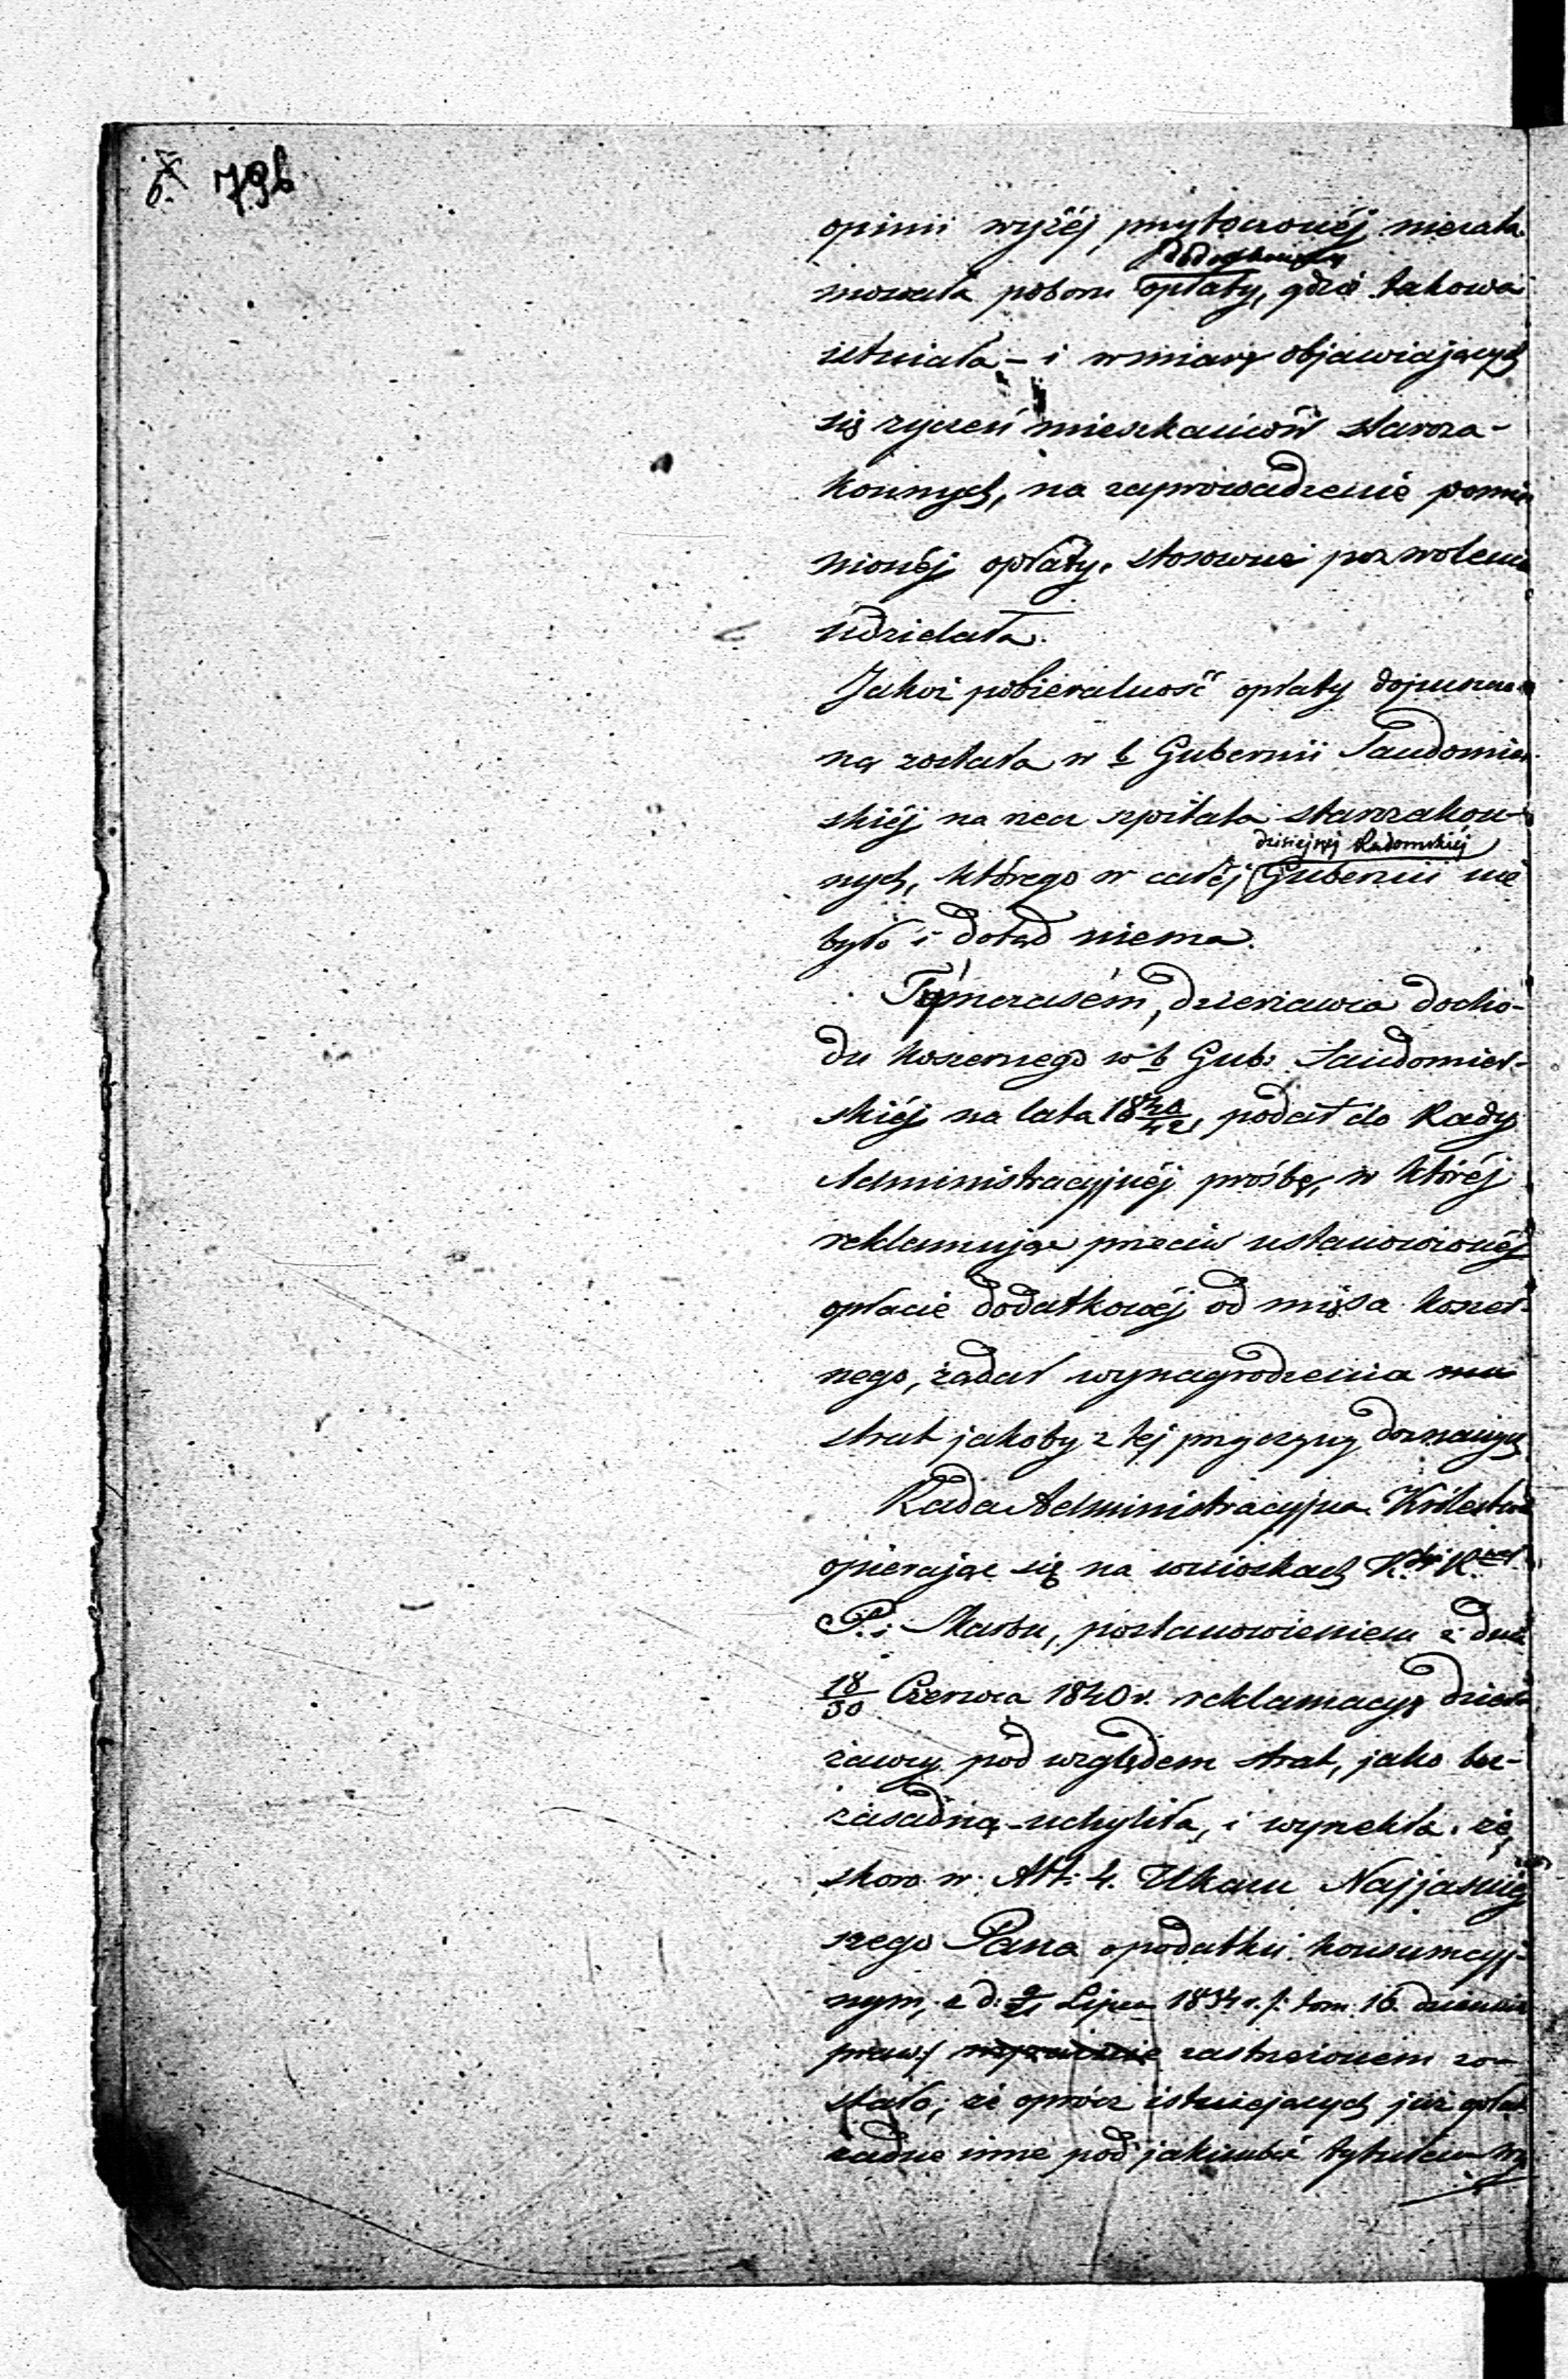 6. 79b
opinii wyżéj przytoczonéj nieta-
mowała poboru opłaty, gdzie takowa
istniała – i w miarę objawiających
się życzeń mieszkańców staroza-
konnych, na zaprowadzenie pomie-
nionéj opłaty, stosowne pozwolenia
udzielała.
Jakoż pobieralność opłaty dopuszczo-
ną została w b Gubernii Sandomier-
skiéj na rzecz szpitala starozakon-
dzisiejszéj Radomskiéj
nych, którego w całéj Gubernii nie
było i dotąd niema.
Tymczasém, dzierżawca docho-
du koszernego w b Gub. Sandomier-
skiéj na lata 1840/42, podał do Rady
Administracyjnéj prośbę, w któréj
reklamując przeciw ustanowionéj
opłacie dodatkowéj od mięsa koszer-
nego, żądał wynagrodzenia mu
strat jakoby z téj przyczyny doznanych
Rada Administracyjna Królestwa
opierając się na wnioskach K.
P. i Skarbu, postanowieniem z dnia
18/30 Czerwca 1840 r. reklamacyę dzier-
żawcy pod względem strat, jako bez-
zasadną uchyliła, i wyrzekła, że
skoro w Art: 4. Ukazu Najjaśniej-
szego Pana o podatku konsumcyj-
nym, z d: 9/21 Lipca 1834 r. /: tom 16. dziennika
praw :/ zastrzeżonem zo-
stało, że oprócz istniejących już opłat
żadne inne pod jakimbć tytułem wy